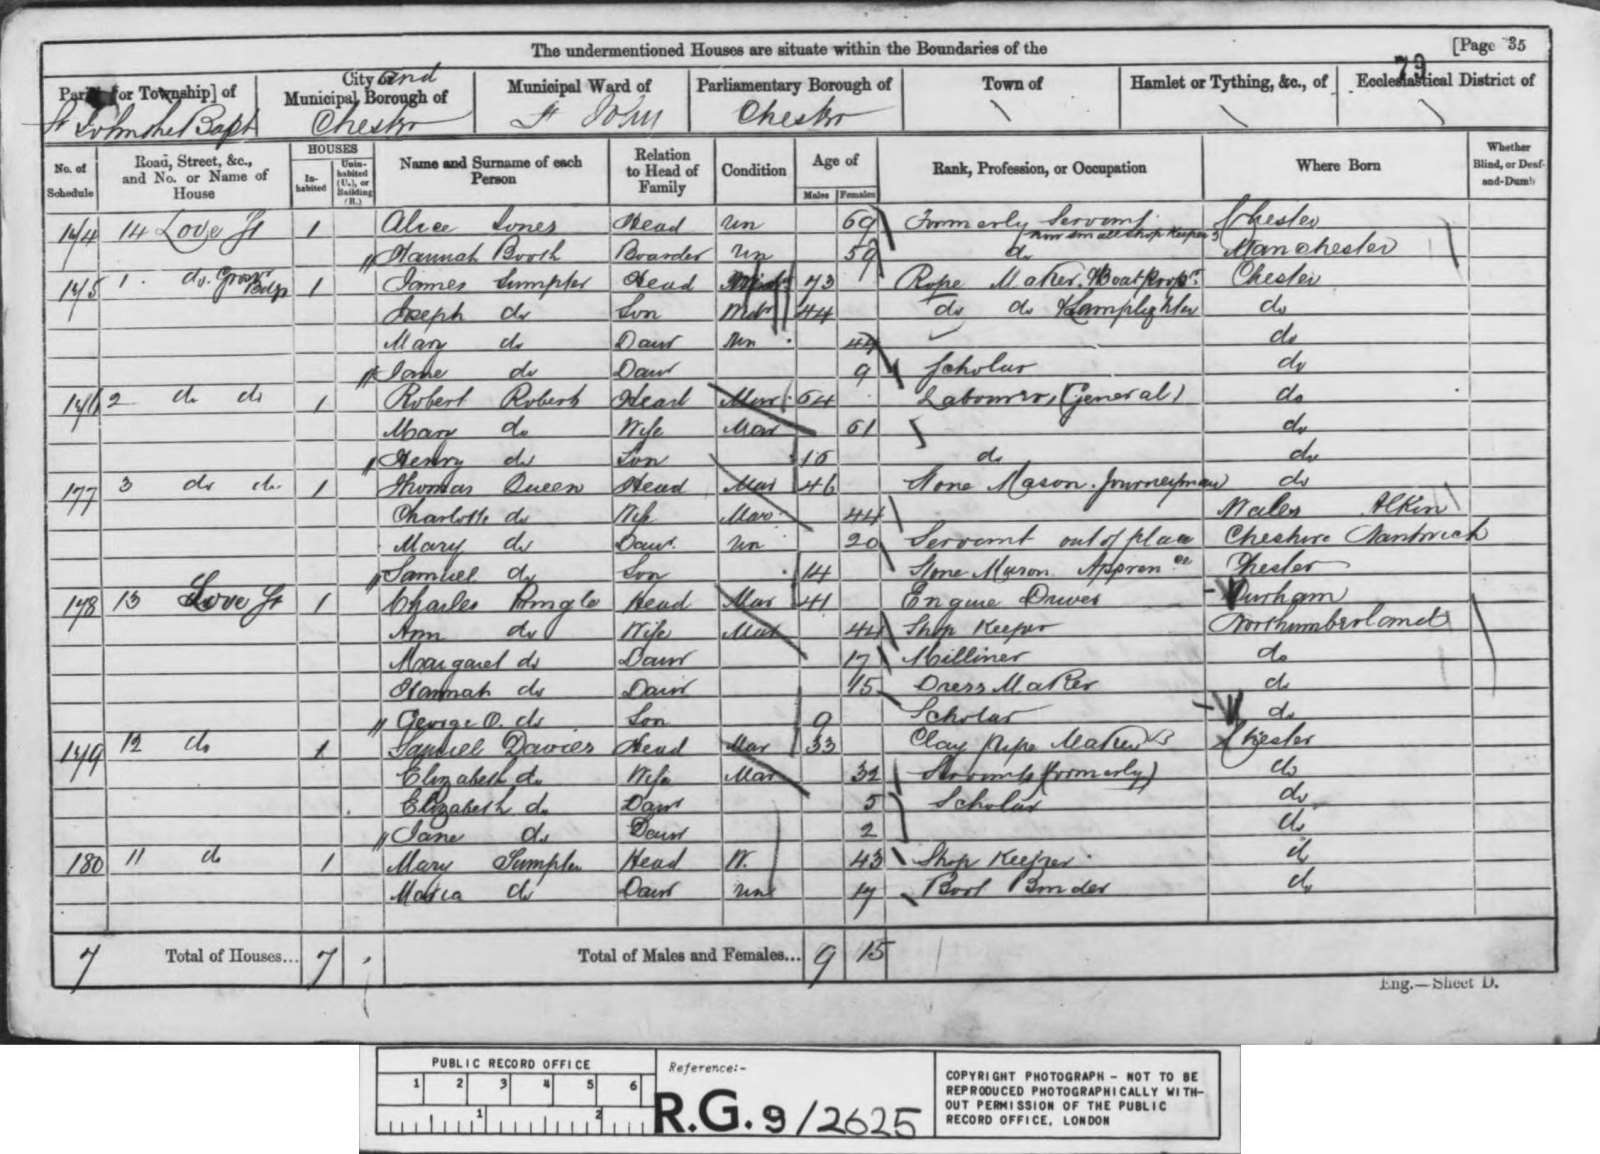 The undermentioned Houses are situate within the Boundaries of the [Page 35
79
Parish [or Township] of City and Municipal Borough of Municipal Ward of Parliamentary Borough of Town of Hamlet or Tything, &c., of Ecclesiastical District of
St John the Bapt Chester St John Chester
No. of Schedule Road, Street, &c., and No. or Name of House HOUSES In-habited Unin-habited (U.), or Building (B.) Name and Surname of each Person Relation to Head of Family Condition Age of Males Females Rank, Profession, or Occupation Where Born Whether Blind, or Deaf-and-Dumb
174 14 Love St 1 Alice Jones Head Un 69 Formerly Servant Chester
now small shop keeper
Hannah Booth Boarder Un 59 do Manchester
175 1 do Grosv Bdgs 1 James Sumpter Head 73 Rope Maker & Boat Chester
Joseph do Son 44 do do & Lamplighter do
Mary do Daur Un 44 do
Jane do Daur 9 Scholar do
176 2 do do 1 Robert Roberts Head Mar 64 Labourer (General) do
Mary do Wife Mar 61 do
Henry do Son 16 do do
177 3 do do 1 Thomas Queen Head Mar 46 Stone Mason Journeyman do
Charlotte do Wife Mar 44 Wales
Mary do Daur Un 20 Servant out of place Cheshire Nantwich
Samuel do Son 14 Stone Mason Appren ce Chester
178 13 Love St 1 Charles Pringle Head Mar 41 Engine Driver Durham
Ann do Wife Mar 44 Shop Keeper Northumberland
Margaret do Daur 17 Milliner do
Hannah do Daur 15 Dress Maker do
George O. do Son 9 Scholar do
179 12 do 1 Samuel Davies Head Mar 33 Clay Pipe Maker Chester
Elizabeth do Wife Mar 32 Servant (formerly) do
Elizabeth do Daur 5 Scholar do
Jane do Daur 2 do
180 11 do 1 Mary Sumpter Head W. 43 Shop Keeper do
Maria do Daur Un 17 Boot Binder do
7 Total of Houses... 7 Total of Males and Females... 9 15
Eng.—Sheet D.
PUBLIC RECORD OFFICE
1 2 3 4 5 6
1 2
Reference:-
R.G. 9/2625
COPYRIGHT PHOTOGRAPH - NOT TO BE
REPRODUCED PHOTOGRAPHICALLY WITH-
OUT PERMISSION OF THE PUBLIC
RECORD OFFICE, LONDON